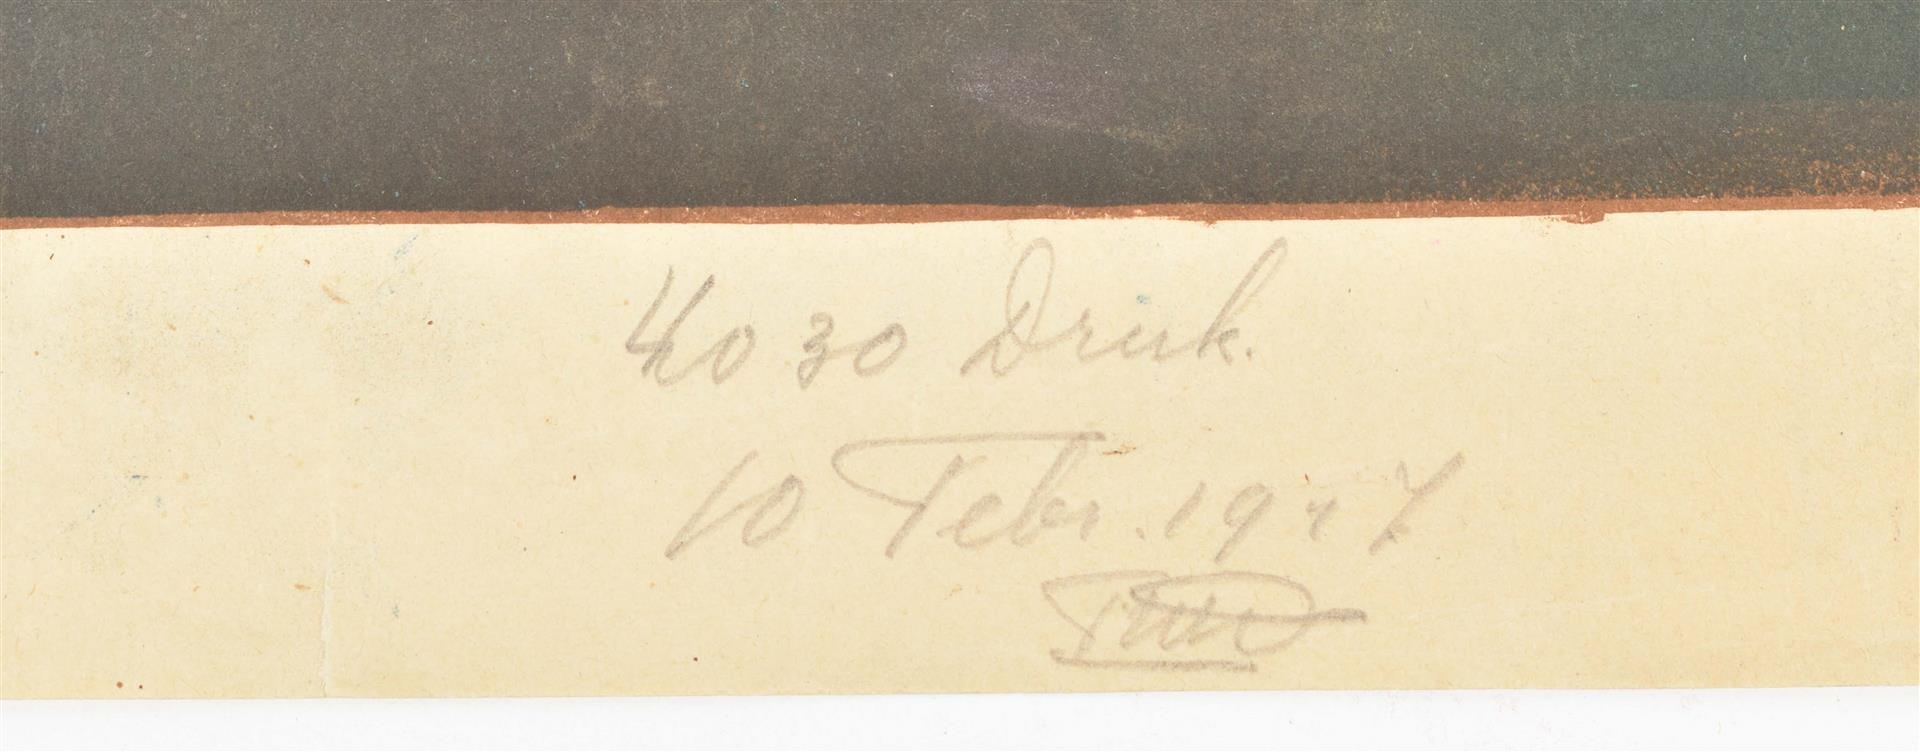 4030 Druk.
10 Febr. 1947